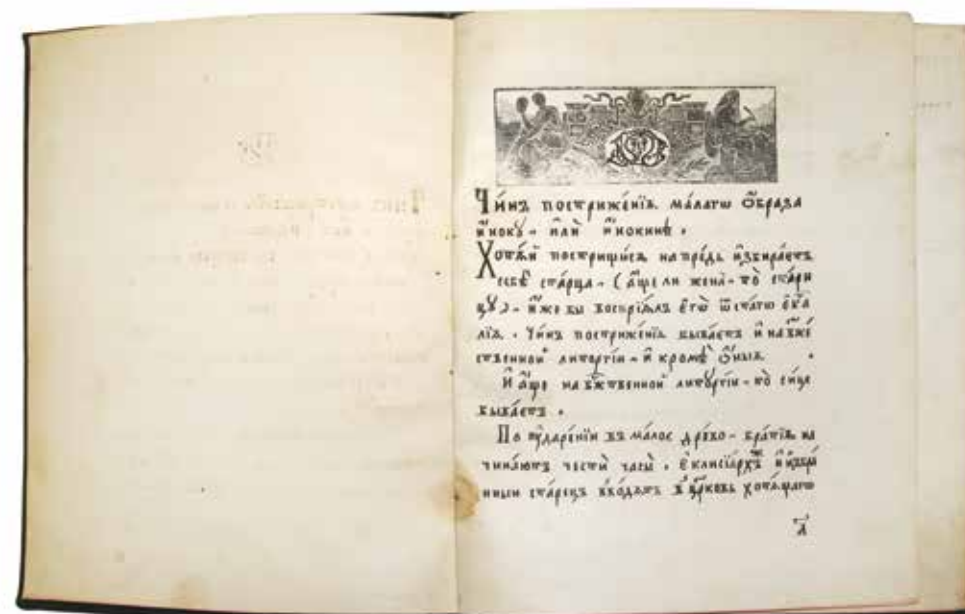 Чи́нъ постриже́нїѧ ма́лагѡ ѻ҆́браза
и҆́ноку - и҆лѝ и҆́нокинѣ .
Хотѧ́й постри́щисѧ напре́дь и҆збира́етъ
себѣ̀ ста́рца - ( а҆́ще ли жена̀ - то̀ ста́ри
цꙋ ) - и҆́же бы воспрїѧ́лъ є҆го̀ ѿ ст҃а́гѡ є҆ѵⷢ҇а́
лїѧ . Чи́нъ постриже́нїѧ быва́етъ и҆ на бж҃е́
ственной литꙋргі́и - и҆ кромѣ̀ ѻ҆́ныѧ .
И҆ а҆́ще на бж҃ственной литꙋргі́и - то̀ си́це
быва́етъ .
По ᲂу҆даре́нїи въ ма́лое дре́во - бра́тїѧ на
чина́ютъ честѝ часы̀ . є҆клисїа́рхъ и҆ и҆збра́
нный ста́рецъ вхо́дѧтъ в це́рковь хотѧ́щагѡ
а҃